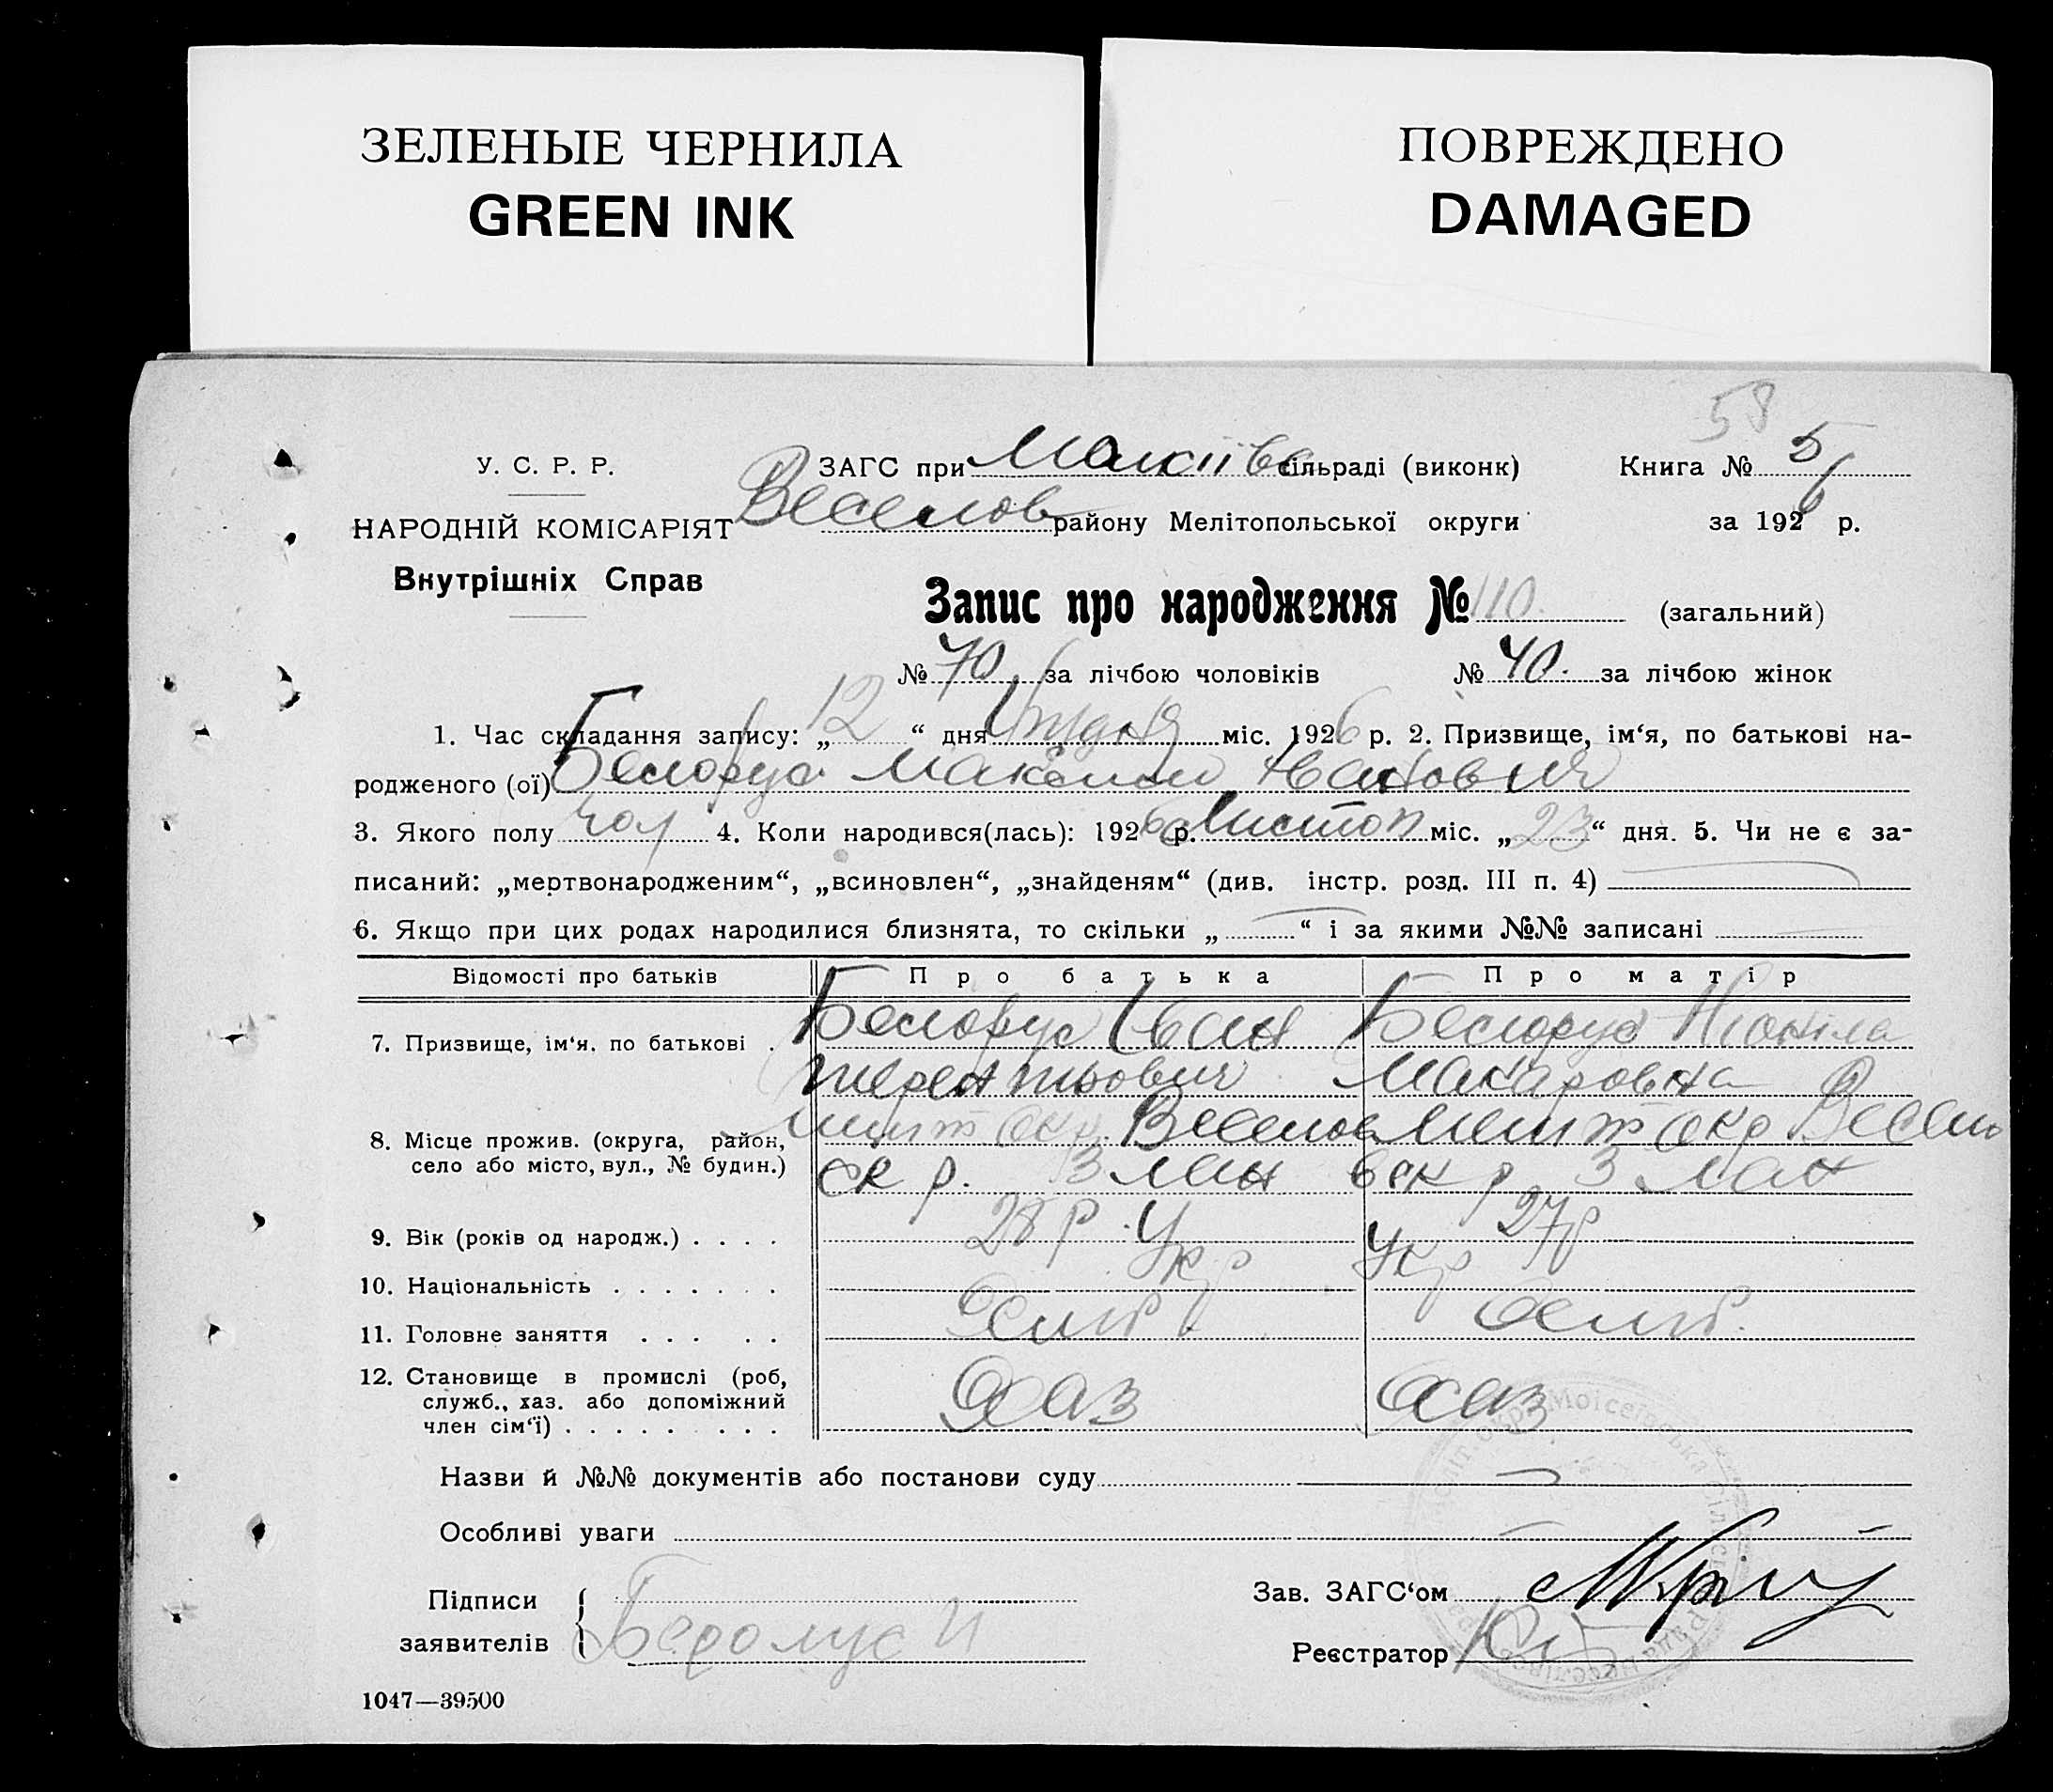 ЗЕЛЕНЫЕ ЧЕРНИЛА
GREEN INK
ПОВРЕЖДЕНО
DAMAGED
58
У. С. Р. Р.
НАРОДНІЙ КОМІСАРІЯТ
Внутрішніх Справ
ЗАГС при сільраді (виконк)
Веселов району Мелітопольської округи
Книга № 5
за 1926 р.
Запис про народження № 110. (загальний)
№ 70 за лічбою чоловіків № 40. за лічбою жінок
1. Час складання запису: „ 12 “ дня Грудня міс. 1926 р. 2. Призвище, ім‘я, по батькові на-
родженого (ої) Белорус Максим Іванович
3. Якого полу чол 4. Коли народився(лась): 1926 р. Листоп міс. „ 23 “ дня. 5. Чи не є за-
писаний: „мертвонародженим“, „всиновлен“, „знайденям“ (див. інстр. розд. III п. 4)
6. Якщо при цих родах народилися близнята, то скільки „ “ і за якими №№ записані
Відомості про батьків Про батька Про матір
7. Призвище, ім‘я, по батькові . Белорус Іван Белорус
Терентьович Макаровна
8. Місце прожив. (округа, район, Мелит Окр. Веселов Мелит Окр Весело
село або місто, вул., № будин.) ск р. 3 лан вск р 3 лан
9. Вік (років од народж.) . . . . 28 р 27 р
10. Національність . . . . . . . Укр Укр
11. Головне заняття . . . . .
12. Становище в промислі (роб, Хаз Хаз
служб., хаз. або допоміжний
член сім‘ї) . . . . . . . . .
Назви й №№ документів або постанови суду
Особливі уваги
Підписи
заявителів
Зав. ЗАГС‘ом
Реєстратор
1047—39500